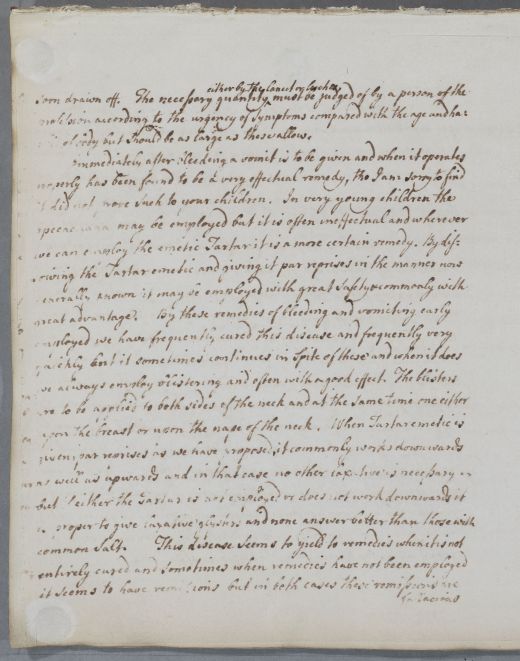 either by the Lancet or Leeches
soon drawn off. The necessary quantity must be judged of by a person of the
profession according to the urgency of Symptoms compared with the age and ha=
of body but should be as large as these allow.
Immediately after bleeding a vomit is to be given and when it operates
properly has been found to be a very effectual remedy, tho I am sorry to find
it did not prove such to your children. In very young children the
Ipecacuana may be employed but it is often ineffectual and wherever
we can employ the emetic Tartar it is a more certain remedy. By dis=
solving the Tartar emetic and giving it par reprises in the manner now
generally known it may be employed with great Safety & commonly with
great advantage. By these remedies of bleeding and vomiting early
employed we have frequently cured this disease and frequently very
quickly but it sometimes continues in spite of these and when it does
we always employ blistering and often with a good effect. The blisters
are to be applied to both sides of the neck and at the same time one either
upon the breast or upon the nape of the neck. When Tartar emetic is
given par reprises as we have proposed, it commonly works downwards
as well as upwards and in that case no other laxative is necessary
but if either the Tartar is not employed or does not work downwards it
is proper to give laxative glysters and none answer better than those with
common Salt. This disease seems to yield to remedies when it is not
entirely cured and sometimes when remedies have not been employed
it seems to have remissions but in both cases these remissions are
fallacious